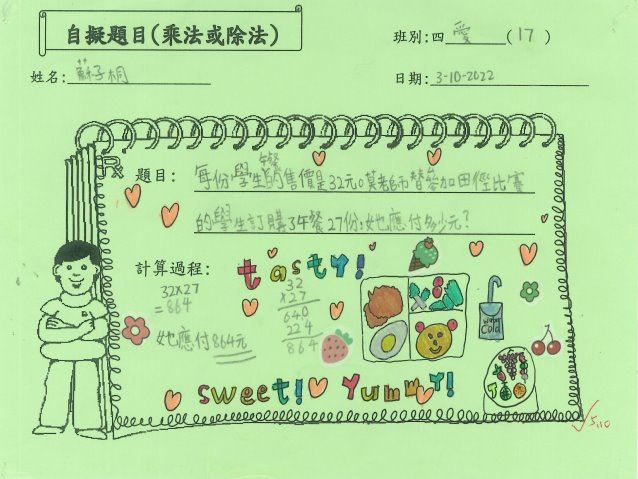 自擬題目(乘法或除法)
班別:四 愛 (17)
姓名: 蘇子桐
日期: 3-10-2022
題目: 每份學生餐的售價是32元。葉老師替參加田徑比賽
的學生訂購了午餐27份,她應付多少元?
計算過程:
tasty!
32×27
=864
她應付864元
32
×27
640
224
864
water
cold
sweet! yummy!
5.10